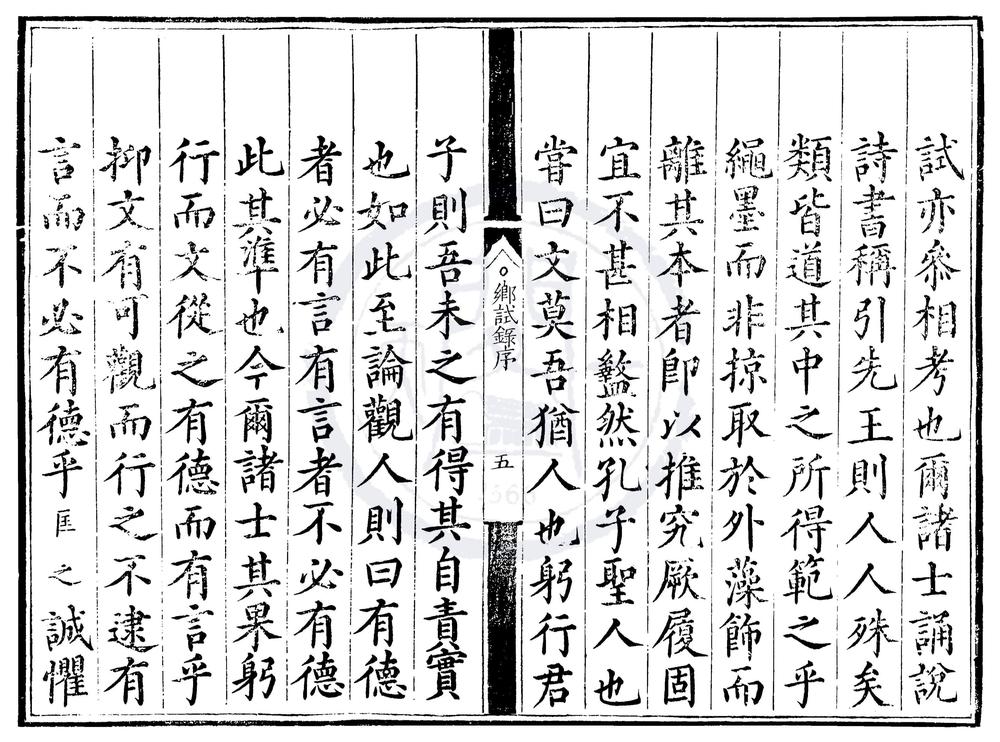 試亦叅相考也爾諸士誦說
詩書稱引先王則人人殊矣
類皆道其中之所得範之乎
繩墨而非掠取於外藻飾而
離其本者卽以推究厥履固
宜不甚相盭然孔子聖人也
嘗曰文莫吾猶人也躬行君
鄉試錄序
五
子則吾未之有得其自責實
也如此至論觀人則曰有德
者必有言有言者不必有德
此其準也今爾諸士其果躬
行而文從之有德而有言乎
抑文有可觀而行之不逮有
言而不必有德乎匡之誠懼